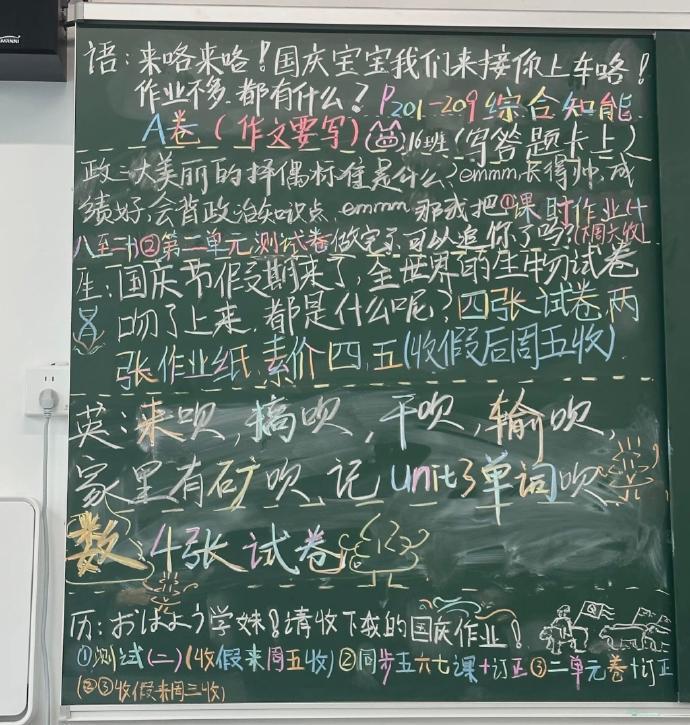 MANNI
语：来咯来咯！国庆宝宝我们来接你上车咯！
作业不多.都有什么？P201-209综合知能
A卷（作文要写）16班（写答题卡上）
政：大美丽的择偶标准是什么？emmm,长得帅,成
绩好,会背政治知识点.emmm 那我把①课时作业(十
八至二十)②第二单元测试卷做完了可以追你了吗?(周六收)
生:国庆节假期来了,全世界的生物试卷
吻了上来.都是什么呢？四张试卷,两
张作业纸.素价四.五(收假后周五收)
英:来呗,搞呗,干呗,输呗,
家里有矿呗.记unit3单词呗
数 4张试卷
历:おはよう学妹！请收下我的国庆作业！
①测试(二)(收假来周五收)②同步五六七课+订正③二单元卷+订正
(②③收假来周三收)